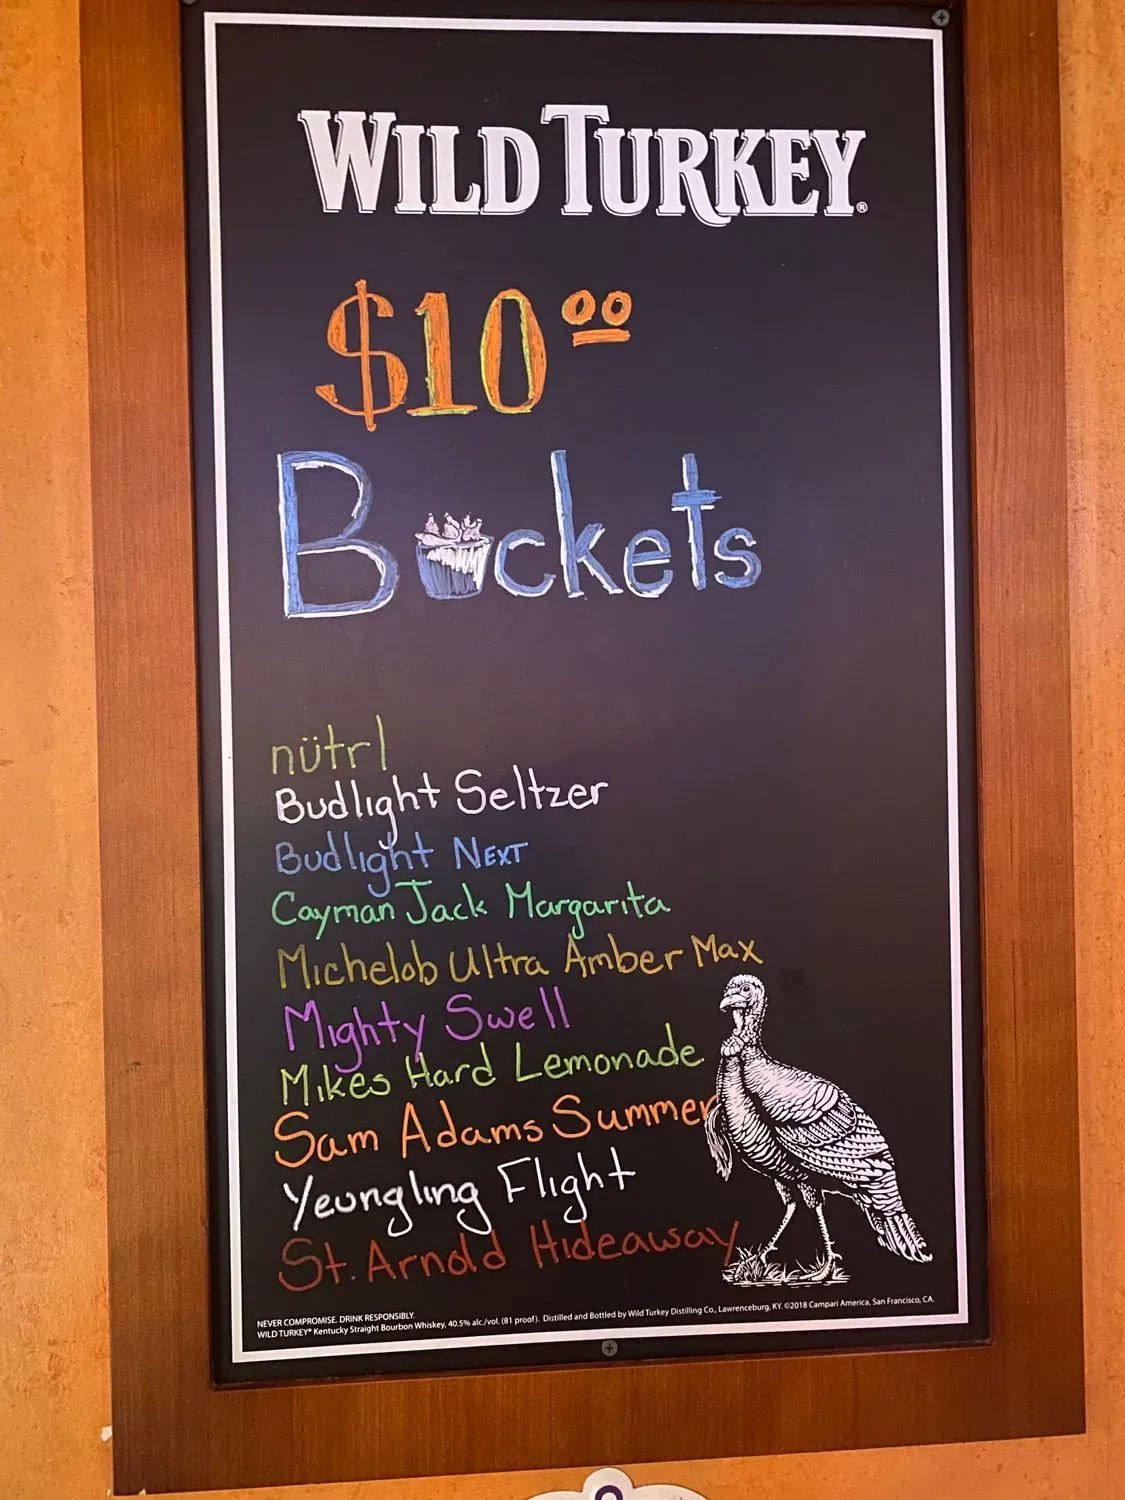 WILD TURKEY®
$10.00
Buckets
nütrl
Budlight Seltzer
Budlight NEXT
Cayman Jack Margarita
Michelob Ultra Amber Max
Mighty Swell
Mikes Hard Lemonade
Sam Adams Summer
Yeungling Flight
St. Arnold Hideaway
NEVER COMPROMISE. DRINK RESPONSIBLY.
WILD TURKEY® Kentucky Straight Bourbon Whiskey, 40.5% alc./vol. (81 proof). Distilled and Bottled by Wild Turkey Distilling Co., Lawrenceburg, KY. ©2018 Campari America, San Francisco, CA.